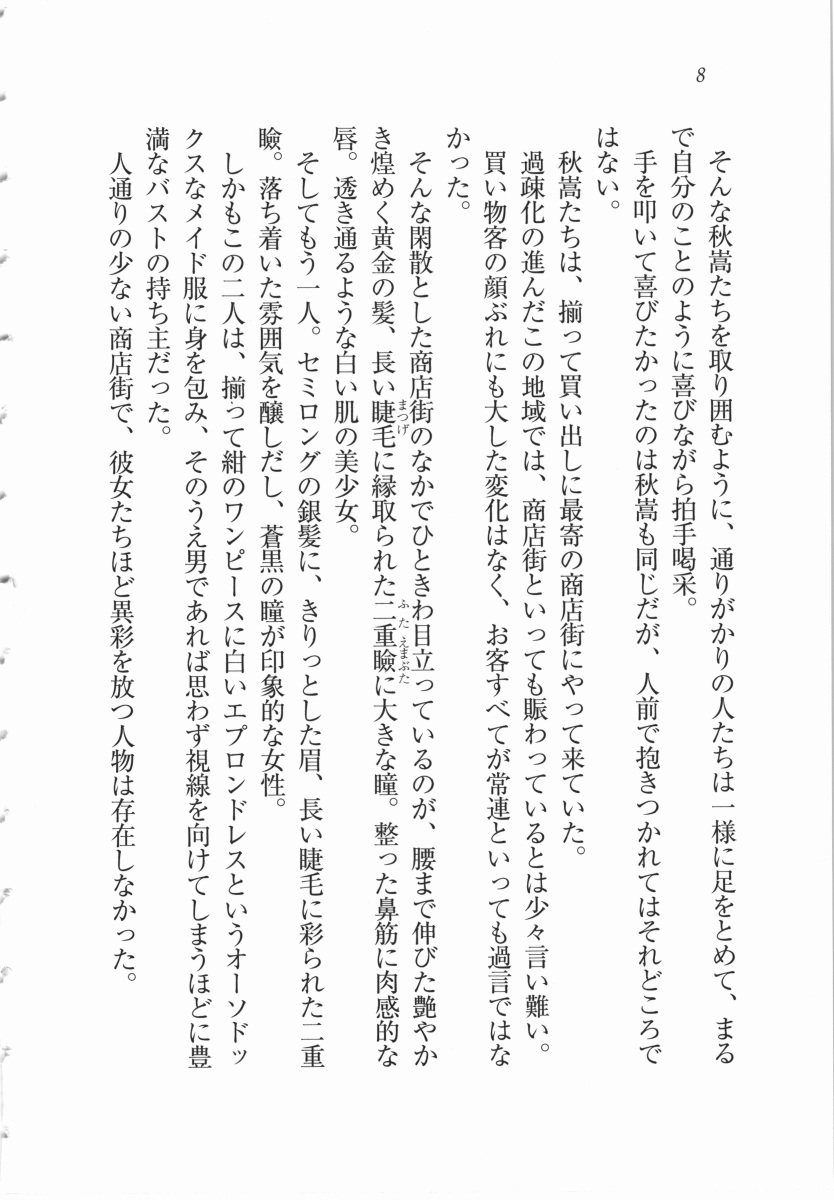 8
そんな秋嵩たちを取り囲むように、通りがかりの人たちは一様に足をとめて、まる
で自分のことのように喜びながら拍手喝采。
手を叩いて喜びたかったのは秋嵩も同じだが、人前で抱きつかれてはそれどころで
はない。
秋嵩たちは、揃って買い出しに最寄の商店街にやって来ていた。
過疎化の進んだこの地域では、商店街といっても賑わっているとは少々言い難い。
買い物客の顔ぶれにも大した変化はなく、お客すべてが常連といっても過言ではな
かった。
そんな閑散とした商店街のなかでひときわ目立っているのが、腰まで伸びた艶やか
き煌めく黄金の髪、長い睫毛に縁取られた二重瞼に大きな瞳。整った鼻筋に肉感的な
まつげ
ふたえまぶた
唇。透き通るような白い肌の美少女。
そしてもう一人。セミロングの銀髪に、きりっとした眉、長い睫毛に彩られた二重
瞼。落ち着いた雰囲気を醸しだし、蒼黒の瞳が印象的な女性。
しかもこの二人は、揃って紺のワンピースに白いエプロンドレスというオーソドッ
クスなメイド服に身を包み、そのうえ男であれば思わず視線を向けてしまうほどに豊
満なバストの持ち主だった。
人通りの少ない商店街で、彼女たちほど異彩を放つ人物は存在しなかった。